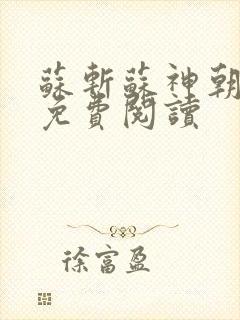 蘇斬蘇神朝
免費閱讀
徐富盈